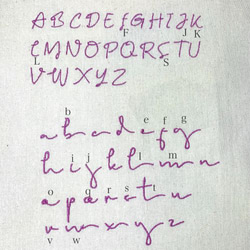 ABCDEFGHIJK
F J K
LMNOPQRSTU
L S
VWXYZ
b e f g
abcdefg
i j l m
hijklmn
o q r s t
opqrstu
v w
vwxyz